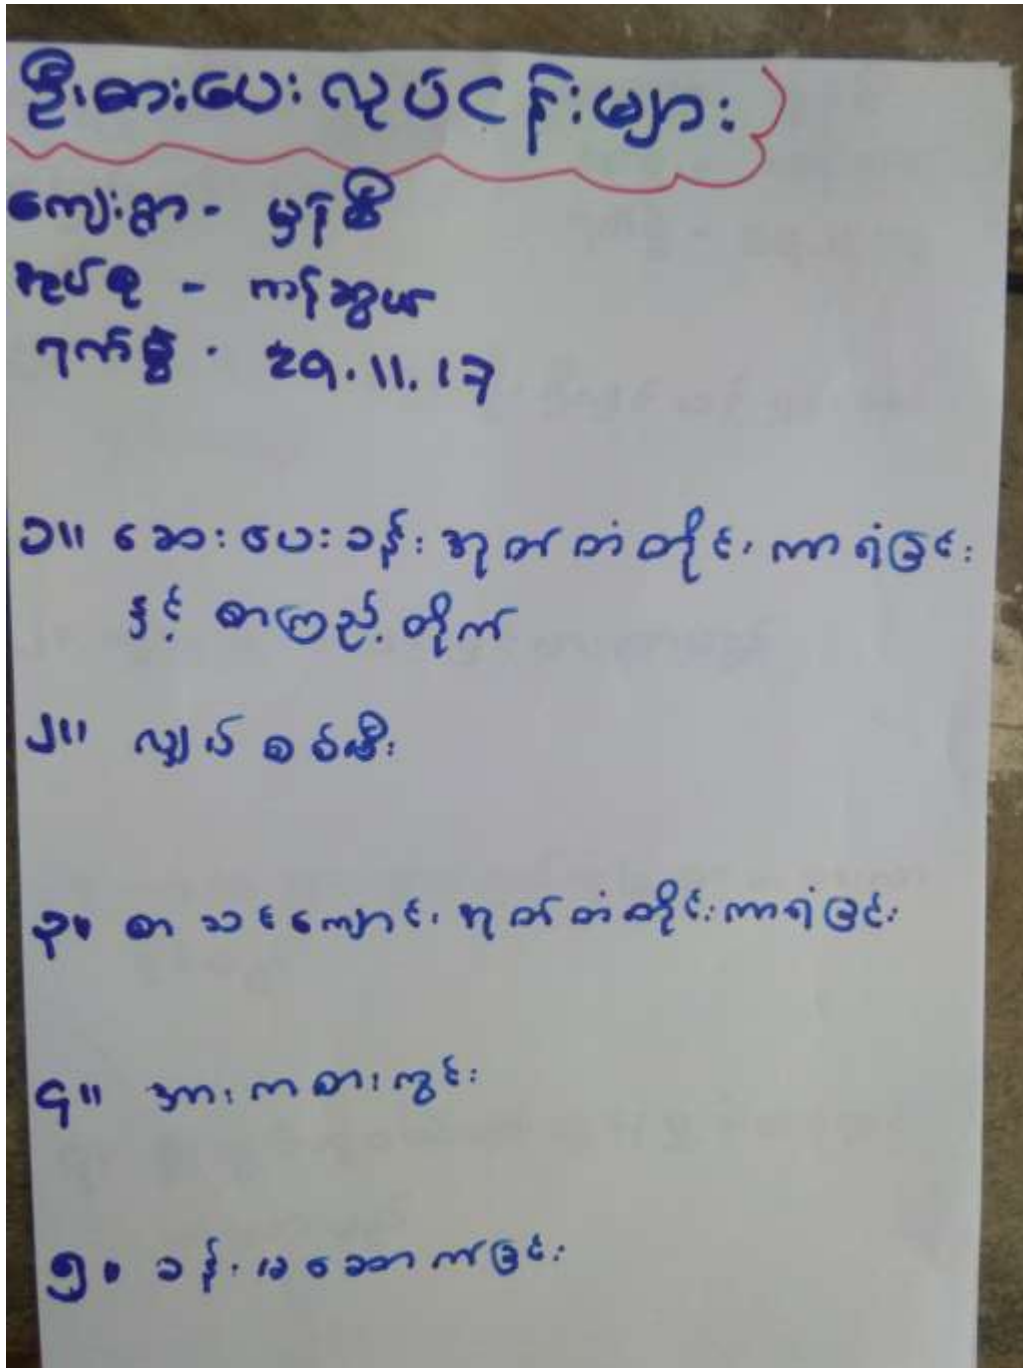 ဦးစားပေးလုပ်ငန်းများ
ကျေးရွာ - မှန်ဆီ
အုပ်စု - ကန်ဆွယ်
ရက်စွဲ - 29.11.17
၁။ ဆေးပေးခန်း အုတ်တံတိုင်းကာရံခြင်း
နှင့် စာကြည့်တိုက်
၂။ လျှပ်စစ်မီး
၃။ စာသင်ကျောင်း အုတ်တံတိုင်းကာရံခြင်း
၄။ အားကစားကွင်း
၅။ ခန်းမဆောက်ခြင်း